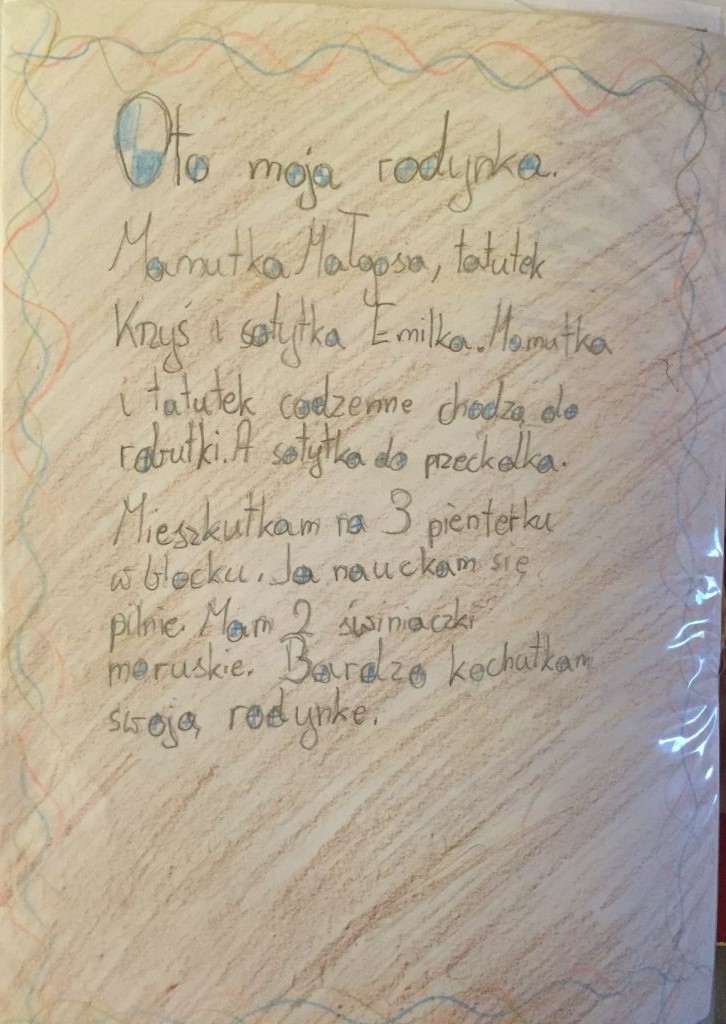 Oto moja rodynka.
Mamutka Małopsa, tatutek
Krzyś i sotytka Emilka. Mamutka
i tatutek codzenne chodzą do
robutki. A sotytka do przeckolka.
Mieszkutkam na 3 pienterku
w blocku. Ja nauckam się
pilnie. Mam 2 świniaczki
moruskie. Bardzo kochutkam
swoją rodynke.